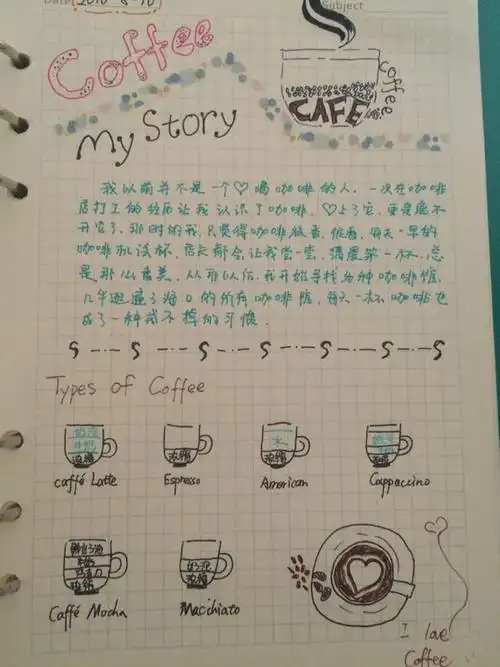 Date 2016-8-10
Subject
Coffee
coffee
CAFE
My Story
我以前并不是一个♡喝咖啡的人. 一次在咖啡
店打工的经历让我认识了咖啡, ♡上了它, 更是离不
开它了. 那时的我, 只觉得咖啡很香, 每天一早的
咖啡机试杯, 店长都会让我尝一尝, 第一杯, 总
是那么香美, 从那以后, 我开始寻找各种咖啡馆,
几乎逛遍了海口的所有咖啡馆, 每天一杯咖啡也
成了一种戒不掉的习惯.
Types of Coffee
奶泡
牛奶
浓缩
caffé Latte
浓缩
Espresso
水
浓缩
American
奶泡
浓缩
Cappuccino
鲜奶油
牛奶
巧克力
浓缩
Caffé Mocha
奶泡
浓缩
Macchiato
I love
Coffee